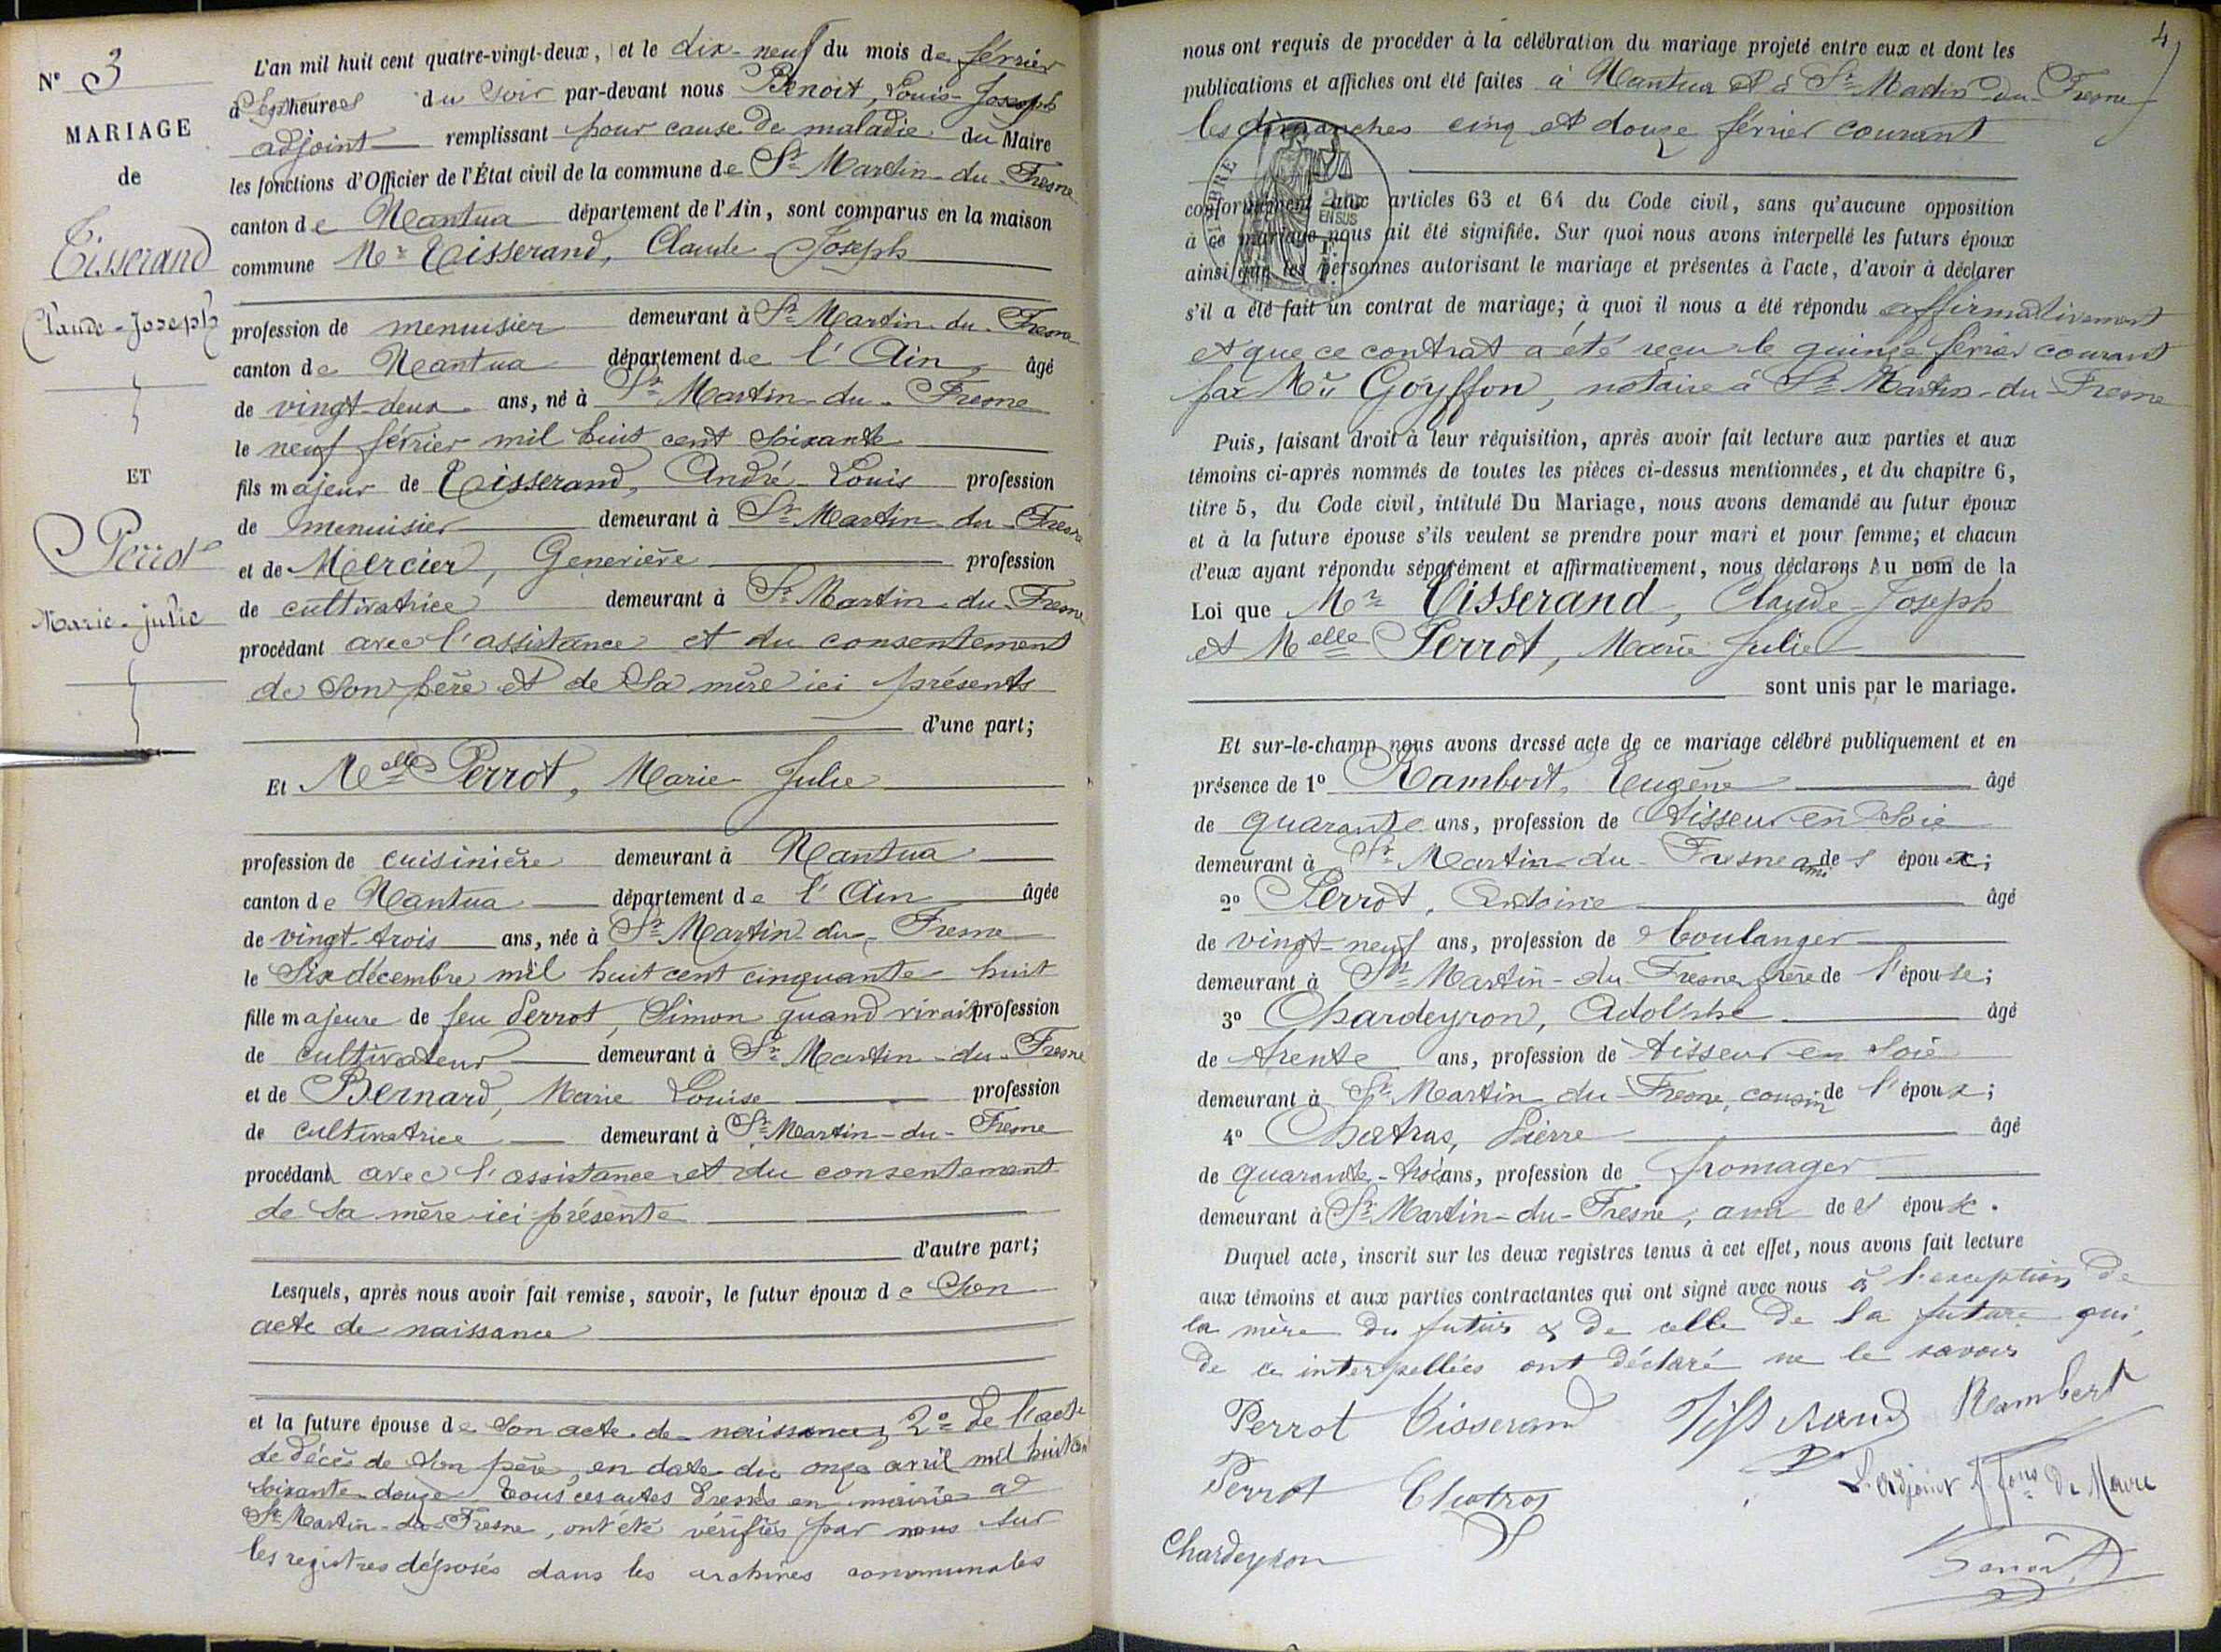 N° 3
MARIAGE
de
Tisserand
Claude-Joseph
ET
Perrot
Marie-julie
L'an mil huit cent quatre-vingt-deux, et le dix-neuf du mois de février
à Sept heures du soir par-devant nous Benoit, Louis-Joseph
adjoint remplissant pour cause de maladie du Maire
les fonctions d'Officier de l'État civil de la commune de St Martin-du-Fresne
canton de Nantua département de l'Ain, sont comparus en la maison
commune Mr Tisserand, Claude Joseph
profession de menuisier demeurant à St Martin-du-Fresne
canton de Nantua département de l'Ain, âgé
de vingt-deux ans, né à St Martin-du-Fresne
le neuf février mil huit cent soixante
fils majeur de Tisserand, André-Louis profession
de menuisier demeurant à St Martin-du-Fresne
et de Mercier, Geneviève profession
de cultivatrice demeurant à St Martin-du-Fresne
procédant avec l'assistance et du consentement
de son père et de sa mère ici présents
d'une part;
Et Melle Perrot, Marie Julie
profession de cuisinière demeurant à Nantua
canton de Nantua département de l'Ain âgée
de vingt-trois ans, née à St Martin-du-Fresne
le Six décembre mil huit cent cinquante huit
fille majeure de feu Perrot, Simon quand vivait profession
de cultivateur demeurant à St Martin-du-Fresne
et de Bernard, Marie Louise profession
de cultivatrice demeurant à St Martin-du-Fresne
procédant avec l'assistance et du consentement
de sa mère ici présente
d'autre part;
Lesquels, après nous avoir fait remise, savoir, le futur époux de son
acte de naissance
et la future épouse de son acte de naissance, 2° de l'acte
de décès de son père, en date du onze avril mil huit cent
soixante-douze. Tous ces actes dressés en mairie de
St Martin-du-Fresne, ont été vérifiés par nous sur
les registres déposés dans les archives communales
4
nous ont requis de procéder à la célébration du mariage projeté entre eux et dont les
publications et affiches ont été faites à Nantua et à St Martin-du-Fresne
les dimanches cinq et douze février courant
TIMBRE
EN SUS
conformément aux articles 63 et 64 du Code civil, sans qu'aucune opposition
à ce mariage nous ait été signifiée. Sur quoi nous avons interpellé les futurs époux
ainsi que les personnes autorisant le mariage et présentes à l'acte, d'avoir à déclarer
s'il a été fait un contrat de mariage; à quoi il nous a été répondu affirmativement
et que ce contrat a été reçu le quinze février courant
par Me Goyffon, notaire à St Martin-du-Fresne
Puis, faisant droit à leur réquisition, après avoir fait lecture aux parties et aux
témoins ci-après nommés de toutes les pièces ci-dessus mentionnées, et du chapitre 6,
titre 5, du Code civil, intitulé Du Mariage, nous avons demandé au futur époux
et à la future épouse s'ils veulent se prendre pour mari et pour femme; et chacun
d'eux ayant répondu séparément et affirmativement, nous déclarons Au nom de la
Loi que Mr Tisserand, Claude-Joseph
et Melle Perrot, Marie Julie
sont unis par le mariage.
Et sur-le-champ nous avons dressé acte de ce mariage célébré publiquement et en
présence de 1° Rambert, Eugène âgé
de quarante ans, profession de tisseur en soie
demeurant à St Martin-du-Fresne ami des époux;
2° Perrot, Antoine âgé
de vingt-neuf ans, profession de boulanger
demeurant à St Martin-du-Fresne, frère de l'épouse;
3° Chardeyron, Adolphe âgé
de trente ans, profession de tisseur en soie
demeurant à St Martin du Fresne, cousin de l'époux;
4° Chatras, Pierre âgé
de quarante-trois ans, profession de fromager
demeurant à St Martin-du-Fresne, ami des époux.
Duquel acte, inscrit sur les deux registres tenus à cet effet, nous avons fait lecture
aux témoins et aux parties contractantes qui ont signé avec nous à l'exception de
la mère du futur & de celle de la future qui,
de ce interpellées ont déclaré ne le savoir
Perrot Tisserand Tisserand Rambert
Perrot Chatras L'adjoint ff fons de Maire
Chardeyron Benoit